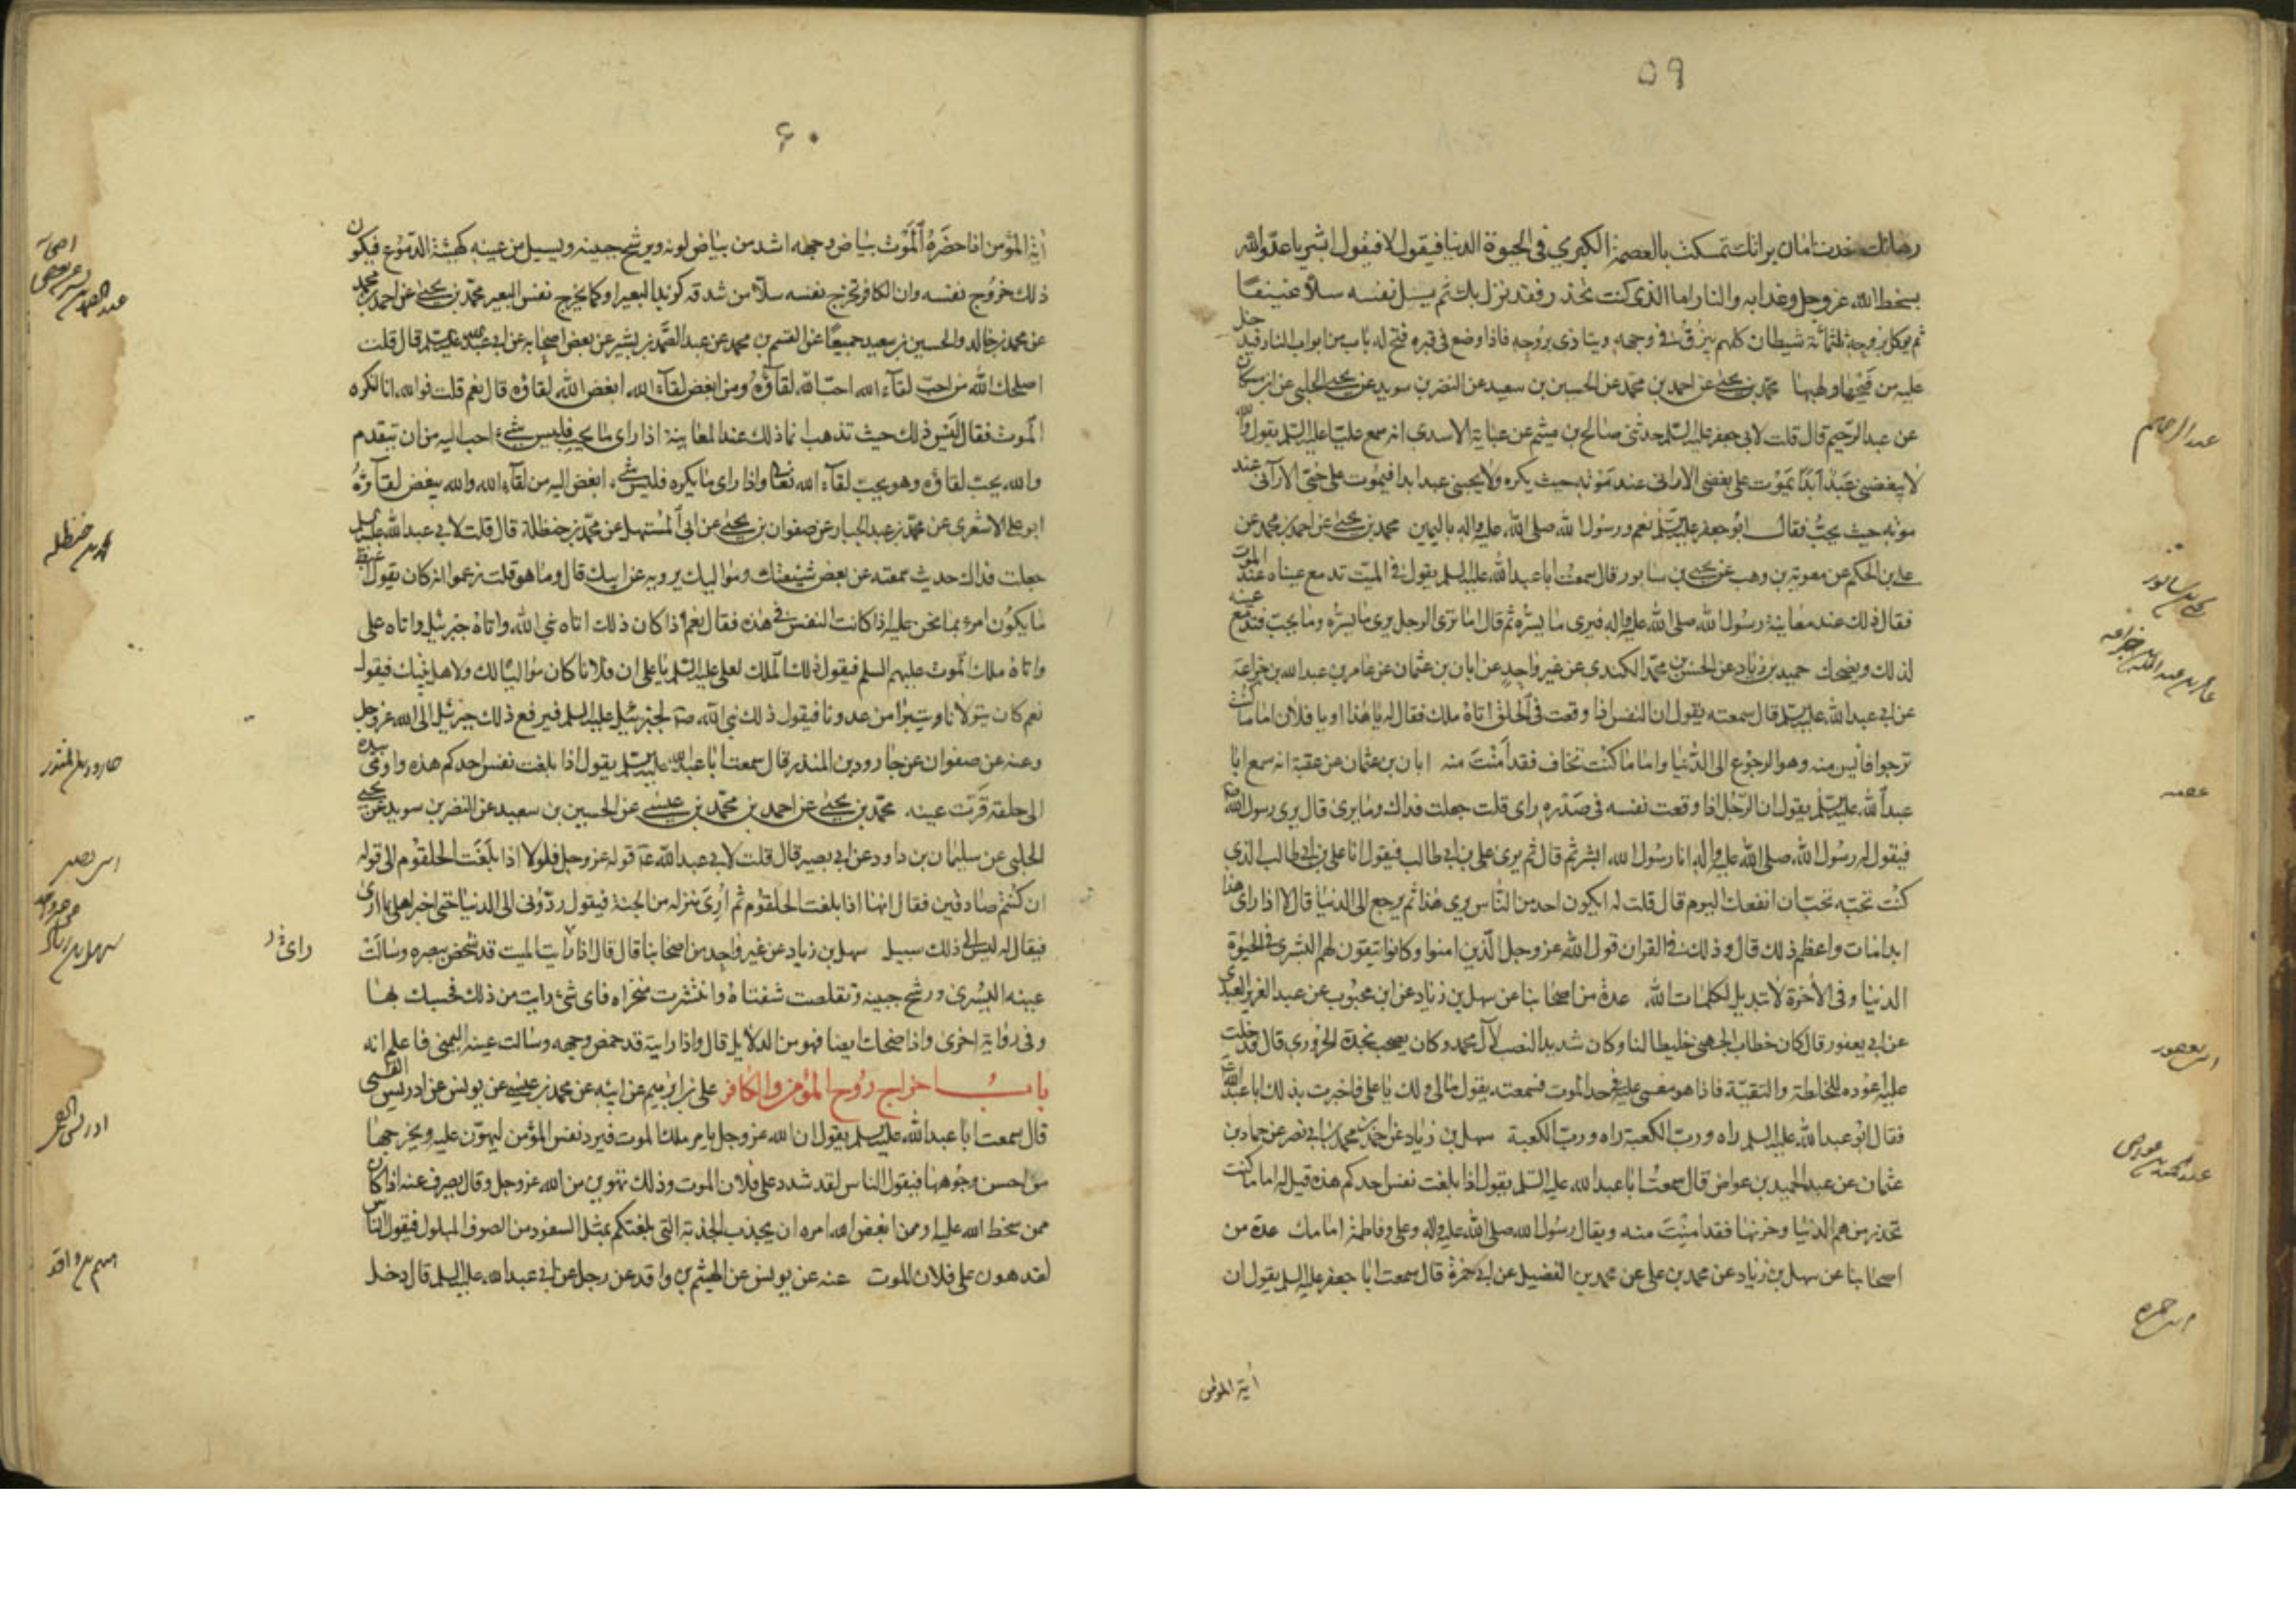 ٥٩
رهانك منه تامان براتك تمسكت بالعصمة الكبرى في الحيوة الدنيا فيقول لا فيقول ابشر يا عدو الله
بسخط الله عز وجل وعذابه والنار اما الذي كنت تحذر فقد نزل بك ثم يسل نفسه سلا عنيفا
ثم يوكل بروحه ثلثمائة شيطان كلهم يبزق في وجهه ويتاذى بروحه فاذا وضع في قبره فتح له باب من ابواب النار فيدخل
عليه من قيحها ولهبها محمد بن يحيى عن احمد بن محمد عن الحسين بن سعيد عن النضر بن سويد عن يحيى الحلبي عن ابن مسكان
عن عبد الرحيم قال قلت لابي جعفر عليه السلم حدثني صالح بن ميثم عن عباية الاسدي انه سمع عليا عليه السلم يقول والله
لا يبغضني عبد ابدا يموت على بغضي الا راني عند موته حيث يكره ولا يحبني عبد ابدا فيموت على حبي الا راني عند
موته حيث يحب فقال ابو جعفر عليه السلم نعم ورسول الله صلى الله عليه واله باليمين محمد بن يحيى عن احمد بن محمد عن
علي بن الحكم عن معوية بن وهب عن يحيى بن سابور قال سمعت ابا عبد الله عليه السلم يقول في الميت تدمع عيناه عند الموت
فقال ذلك عند معاينة رسول الله صلى الله عليه واله فيرى ما يسره ثم قال اما ترى الرجل يرى ما يسره وما يحب فتدمع عينه
لذلك ويضحك حميد بن زياد عن الحسن بن محمد الكندي عن غير واحد عن ابان بن عثمان عن عامر بن عبد الله بن خزاعة
عن ابي عبد الله عليه السلم قال سمعته يقول ان النفس اذا وقعت في الحلق اتاه ملك فقال له يا هذا او يا فلان اما ما كنت
ترجوا فايس منه وهو الرجوع الى الدنيا واما ما كنت تخاف فقد امنت منه ابان بن عثمان عن عقبة انه سمع ابا
عبد الله عليه السلم يقول ان الرجل اذا وقعت نفسه في صدره راى قلت جعلت فداك وما يرى قال يرى رسول الله
فيقول له رسول الله صلى الله عليه واله انا رسول الله ابشر ثم قال ثم يرى علي بن ابي طالب فيقول انا علي بن ابي طالب الذي
كنت تحبه تحب ان انفعك اليوم قال قلت له ايكون احد من الناس يرى هذا ثم يرجع الى الدنيا قال لا اذا راى هذا
ابدا مات واعظم ذلك قال وذلك في القران قول الله عز وجل الذين امنوا وكانوا يتقون لهم البشرى في الحيوة
الدنيا وفي الاخرة لا تبديل لكلمات الله عدة من اصحابنا عن سهل بن زياد عن ابن محبوب عن عبد العزيز العبدي
عن ابي يعفور قال كان خطاب الجهني خليطا لنا وكان شديد النصب لآل محمد وكان يصحب نجدة الحروري قال فدخلت
عليه اعوده للخلطة والتقية فاذا هو مغمى عليه في حد الموت فسمعته يقول مالي ولك يا علي فاخبرت بذلك ابا عبد الله
فقال ابو عبد الله عليه السلم راه ورب الكعبة راه ورب الكعبة سهل بن زياد عن احمد بن محمد بن ابي نصر عن حماد بن
عثمان عن عبد الحميد بن عواض قال سمعت ابا عبد الله عليه السلم يقول اذا بلغت نفس احدكم هذه قيل له اما ما كنت
تحذر من هم الدنيا وحزنها فقد امنت منه ويقال رسول الله صلى الله عليه واله وعلي وفاطمة امامك عدة من
اصحابنا عن سهل بن زياد عن محمد بن علي عن محمد بن الفضيل عن ابي حمزة قال سمعت ابا جعفر عليه السلم يقول ان
اية المؤمن
عبد الرحيم
يحيى بن سابور
عامر بن عبد الله بن خزاعه
عقبه
ابن يعفور
عبد الحميد بن عواض
ابي حمزه
٦٠
اية المؤمن اذا حضره الموت بياض وجهه اشد من بياض لونه ويرشح جبينه ويسيل من عينيه كهيئة الدموع فيكون
ذلك خروج نفسه وان الكافر تخرج نفسه سلا من شدقه كزبد البعير او كما يخرج نفس البعير محمد بن يحيى عن احمد بن محمد
عن محمد بن خالد والحسين بن سعيد جميعا عن القسم بن محمد عن عبد الصمد بن بشير عن بعض اصحابه عن ابي عبد الله عليه السلم قال قلت
اصلحك الله من احب لقاء الله احب الله لقاؤه ومن ابغض لقاء الله ابغض الله لقاؤه قال نعم قلت فوالله انا لنكره
الموت فقال ليس ذلك حيث تذهب انما ذلك عند المعاينة اذا راى ما يحب فليس شيء احب اليه من ان يتقدم
والله يحب لقاؤه وهو يحب لقاء الله تعالى واذا راى ما يكره فليس شيء ابغض اليه من لقاء الله والله يبغض لقاؤه
ابو علي الاشعري عن محمد بن عبد الجبار عن صفوان بن يحيى عن ابي المستهل عن محمد بن حنظلة قال قلت لابي عبد الله عليه السلم
جعلت فداك حديث سمعته عن بعض شيعتك ومواليك يرويه عن ابيك قال وما هو قلت زعموا انه كان يقول اغبط
ما يكون امرء بما نحن عليه اذا كانت النفس في هذه فقال نعم اذا كان ذلك اتاه نبي الله واتاه جبرئيل واتاه علي
واتاه ملك الموت عليهم السلم فيقول ذلك الملك لعلي عليه السلم يا علي ان فلانا كان مواليا لك ولاهل بيتك فيقول
نعم كان يتولانا ويتبرا من عدونا فيقول ذلك نبي الله ص لجبرئيل عليه السلم فيرفع ذلك جبرئيل الى الله عز وجل
وعنه عن صفوان عن جارود بن المنذر قال سمعت ابا عبد الله عليه السلم يقول اذا بلغت نفس احدكم هذه واومى بيده
الى حلقه قرت عينه محمد بن يحيى عن احمد بن محمد بن عيسى عن الحسين بن سعيد عن النضر بن سويد عن يحيى
الحلبي عن سليمان بن داود عن ابي بصير قال قلت لابي عبد الله ع قوله عز وجل فلولا اذا بلغت الحلقوم الى قوله
ان كنتم صادقين فقال انها اذا بلغت الحلقوم ثم اري منزله من الجنة فيقول ردوني الى الدنيا حتى اخبر اهلي بما ارى
فيقال له ليس الى ذلك سبيل سهل بن زياد عن غير واحد من اصحابنا قال قال اذا رايت الميت قد شخص ببصره وسالت
عينه اليسرى ورشح جبينه وتقلصت شفتاه وانتشرت منخراه فاي شيء رايت من ذلك فحسبك بها
وفي رواية اخرى واذا ضحك ايضا فهو من الدلايل قال واذا رايته قد خمص وجهه وسالت عينه اليمنى فاعلم انه
باب اخراج روح المؤمن والكافر علي بن ابرهيم عن ابيه عن محمد بن عيسى عن يونس عن ادريس القمي
قال سمعت ابا عبد الله عليه السلم يقول ان الله عز وجل يامر ملك الموت فيرد نفس المؤمن ليهون عليه ويخرجها
من احسن وجوهها فيقول الناس لقد شدد على فلان الموت وذلك تهوين من الله عز وجل وقال يصرف عنه اذا كان
ممن سخط الله عليه او ممن ابغض الله امره ان يجذب الجذبة التي بلغتكم بمثل السفود من الصوف المبلول فيقول الناس
لقد هون على فلان الموت عنه عن يونس عن الهيثم بن واقد عن رجل عن ابي عبد الله عليه السلم قال دخل
محمد بن حنظله
جارود بن المنذر
ابي بصير
سهل بن زياد
راى
ادريس القمي